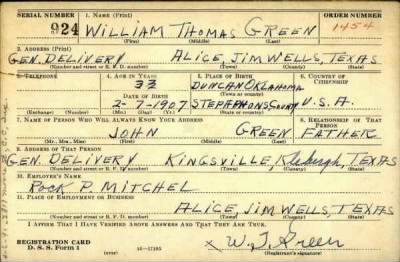 SERIAL NUMBER 1. NAME (Print) ORDER NUMBER
924 WILLIAM THOMAS GREEN 1454
(First) (Middle) (Last)
2. ADDRESS (Print)
GEN. DELIVERY ALICE, JIM WELLS, TEXAS
(Number and street or R. F. D. number) (Town) (County) (State)
3. TELEPHONE 4. AGE IN YEARS 5. PLACE OF BIRTH 6. COUNTRY OF CITIZENSHIP
33 DUNCAN OKLAHOMA
DATE OF BIRTH (Town or county)
2-7-1907 STEPHONS COUNTY U.S.A.
(Exchange) (Number) (Mo.) (Day) (Yr.) (State or country)
7. NAME OF PERSON WHO WILL ALWAYS KNOW YOUR ADDRESS 8. RELATIONSHIP OF THAT PERSON
JOHN GREEN FATHER
(Mr., Mrs., Miss) (First) (Middle) (Last)
9. ADDRESS OF THAT PERSON
GEN. DELIVERY KINGSVILLE, TEXAS
(Number and street or R. F. D. number) (Town) (County) (State)
10. EMPLOYER'S NAME
ROCK P. MITCHEL
11. PLACE OF EMPLOYMENT OR BUSINESS
ALICE, JIM WELLS, TEXAS
(Number and street or R. F. D. number) (Town) (County) (State)
I AFFIRM THAT I HAVE VERIFIED ABOVE ANSWERS AND THAT THEY ARE TRUE.
REGISTRATION CARD
D. S. S. Form 1 (over) 16—17105 x W. T. Green
(Registrant's signature)